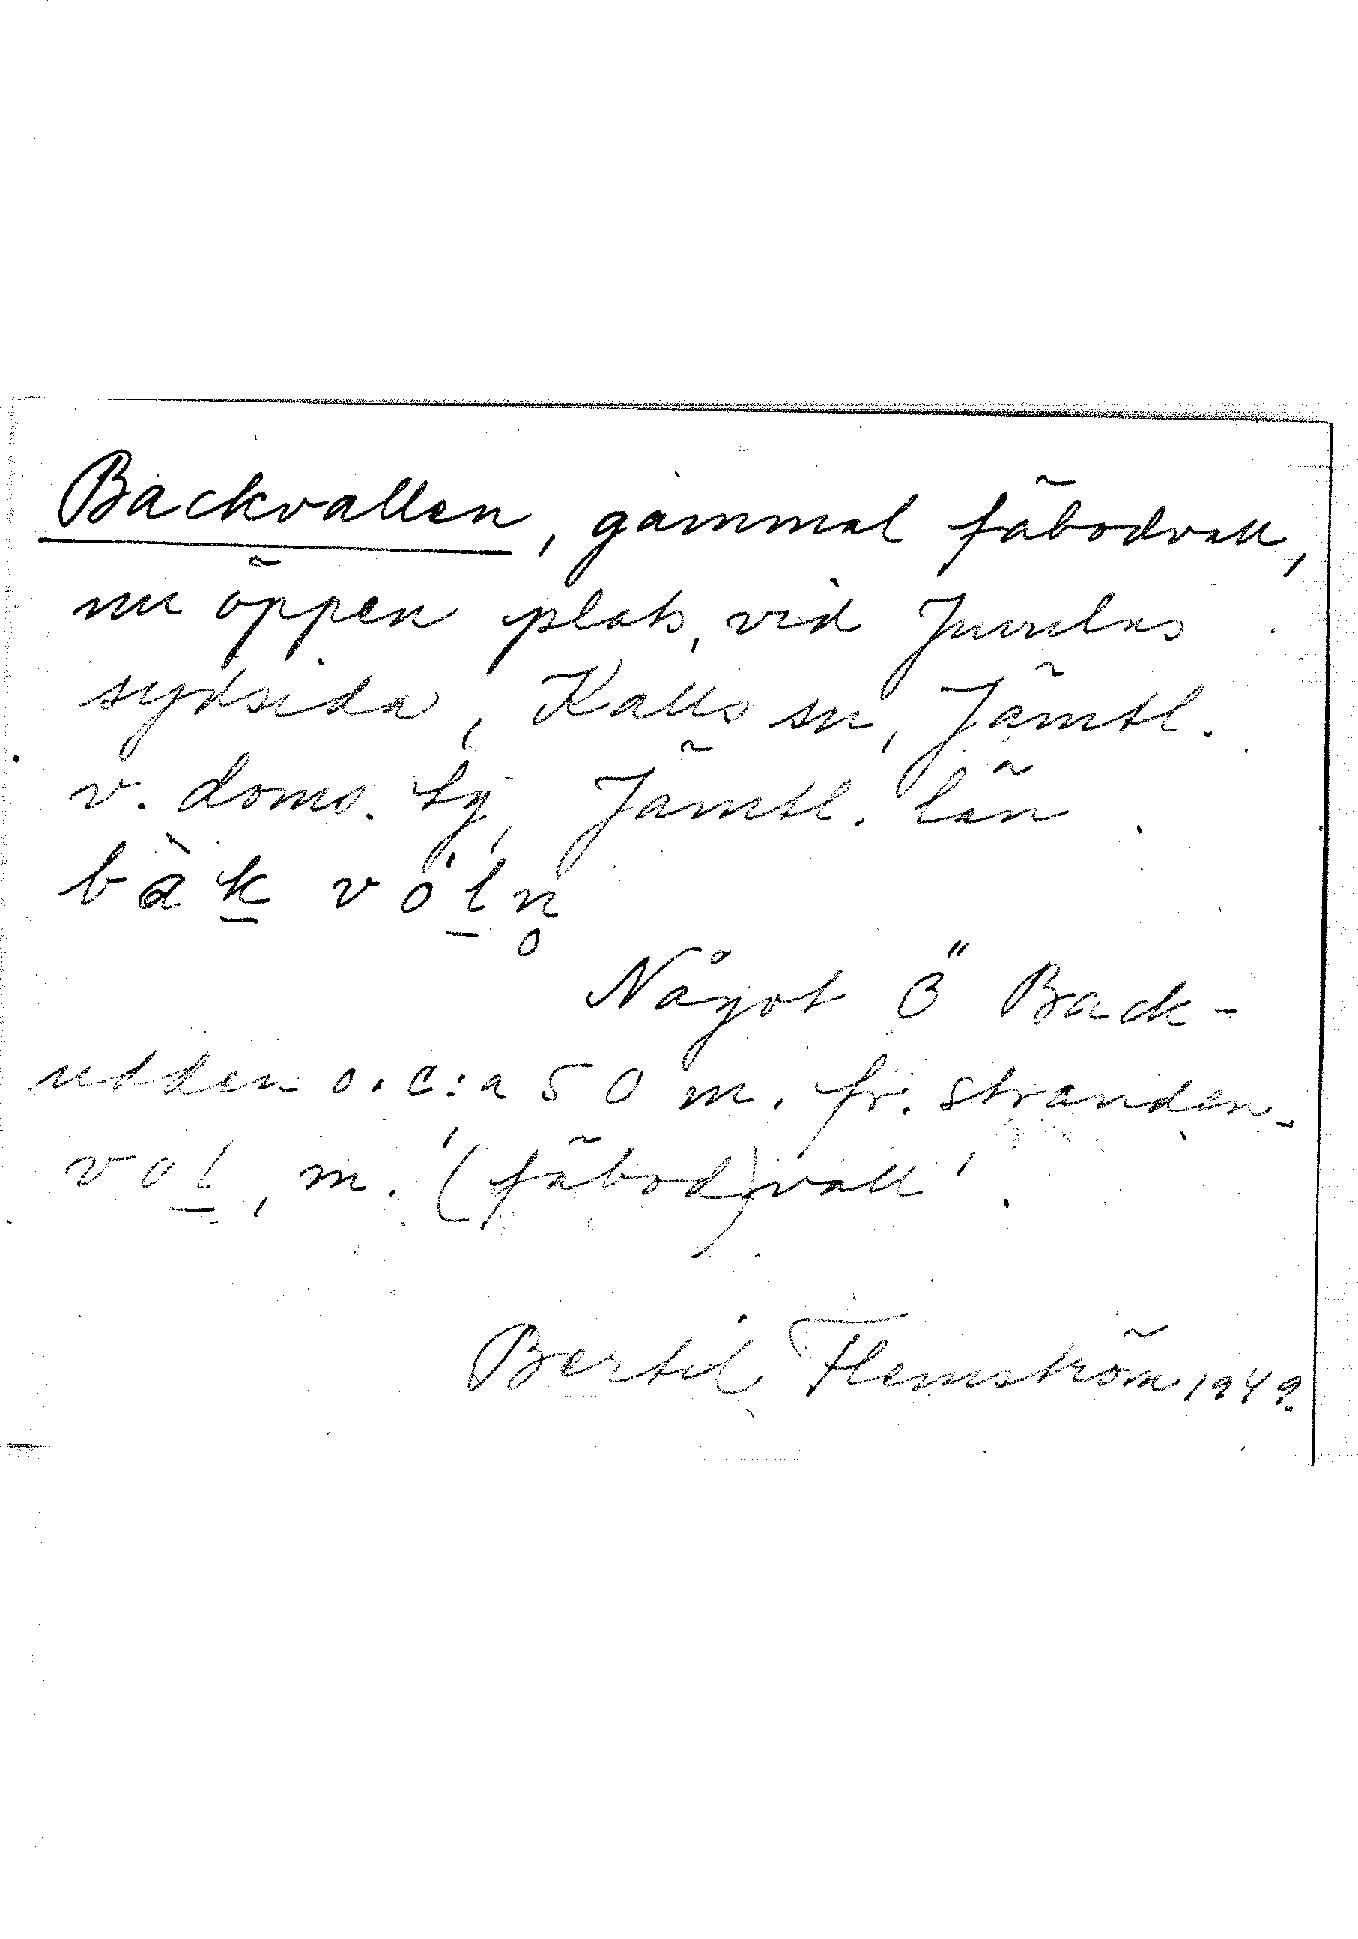 Backvallen, gammal fäbodvall,
nu öppen plats, vid Juvulns
sydsida, Kalls sn, Jämtl.
v. doms. tg, Jämtl. län.
bàk vól̥n̥
Något Ö Back-
udden o. c:a 50 m. fr. stranden.
vol, m. '(fäbod)vall'.
Bertil Flemström 1949.